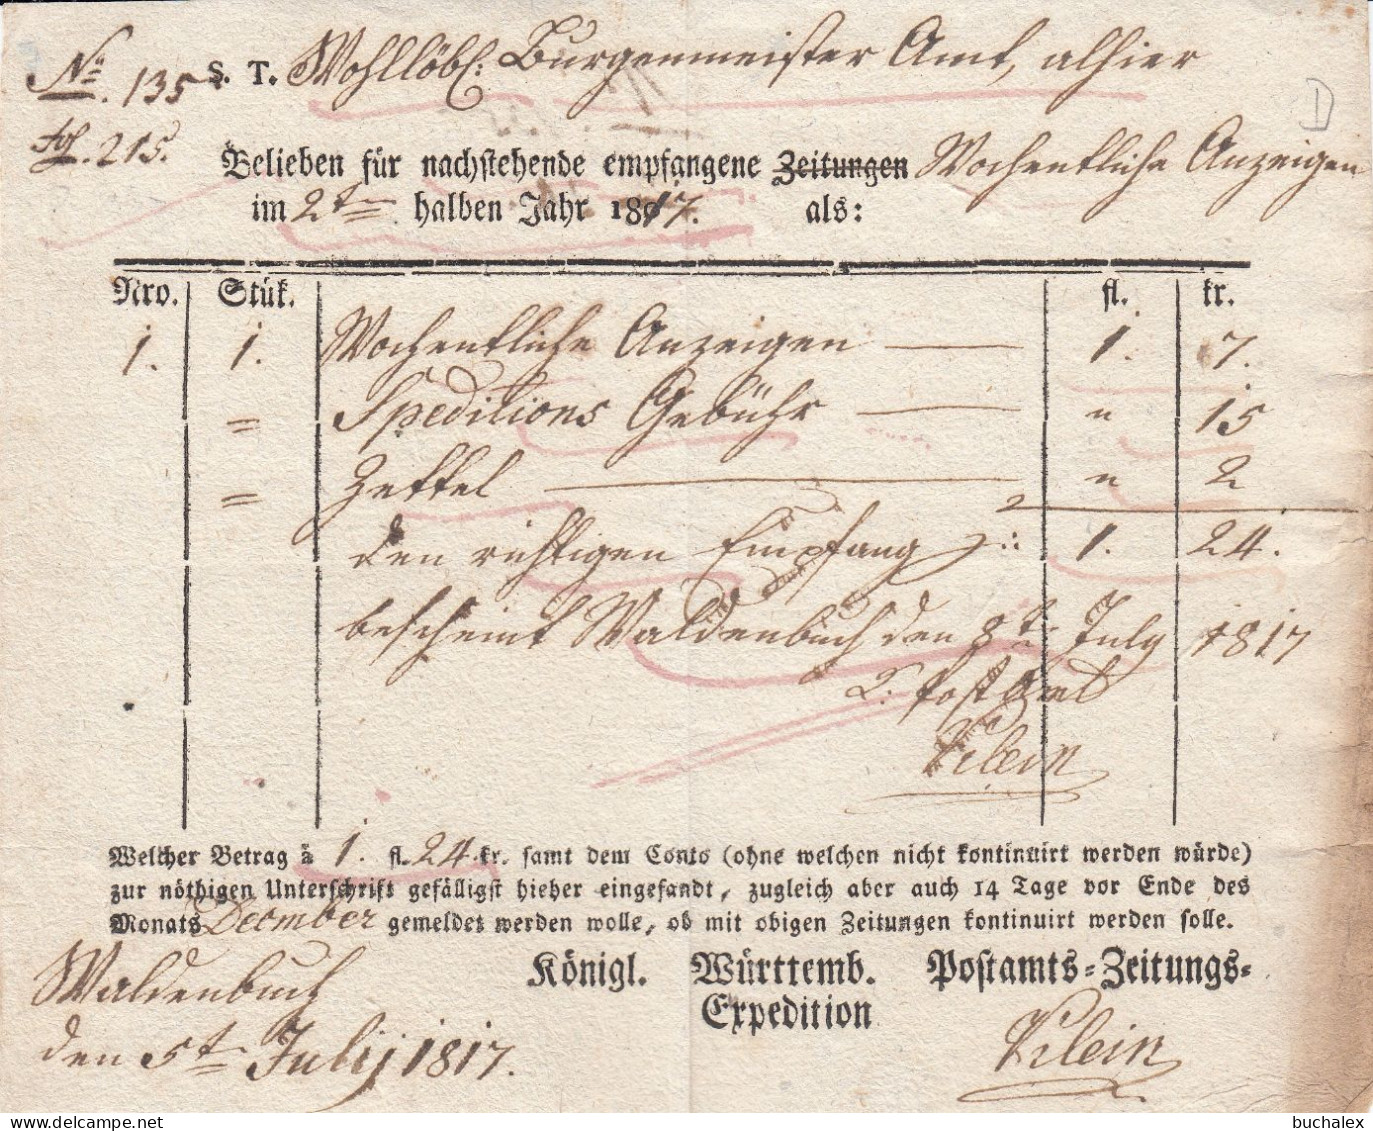 No. 135 S. T. Wohllöbl: Burgenmeister Amt, alhier
fol. 215.
D
Belieben für nachstehende empfangene Zeitungen Wochentliche Anzeigen
im 2ten halben Jahr 1817. als:
Nro. Stük. fl. kr.
1. 1. Wochentliche Anzeigen — 1. 7.
= Speditions Gebühr — " 15
= Zettel — " 2
den richtigen Empfang 1. 24.
bescheint Waldenbuch den 8t. July 1817
Post Amt
Klein
Welcher Betrag à 1. fl. 24. kr. samt dem Conto (ohne welchen nicht kontinuirt werden würde)
zur nöthigen Unterschrift gefälligst hieher eingesandt, zugleich aber auch 14 Tage vor Ende des
Monats December gemeldet werden wolle, ob mit obigen Zeitungen kontinuirt werden solle.
Waldenbuch Königl. Württemb. Postamts-Zeitungs-
Expedition
den 5t Julij 1817. Klein
buchalex